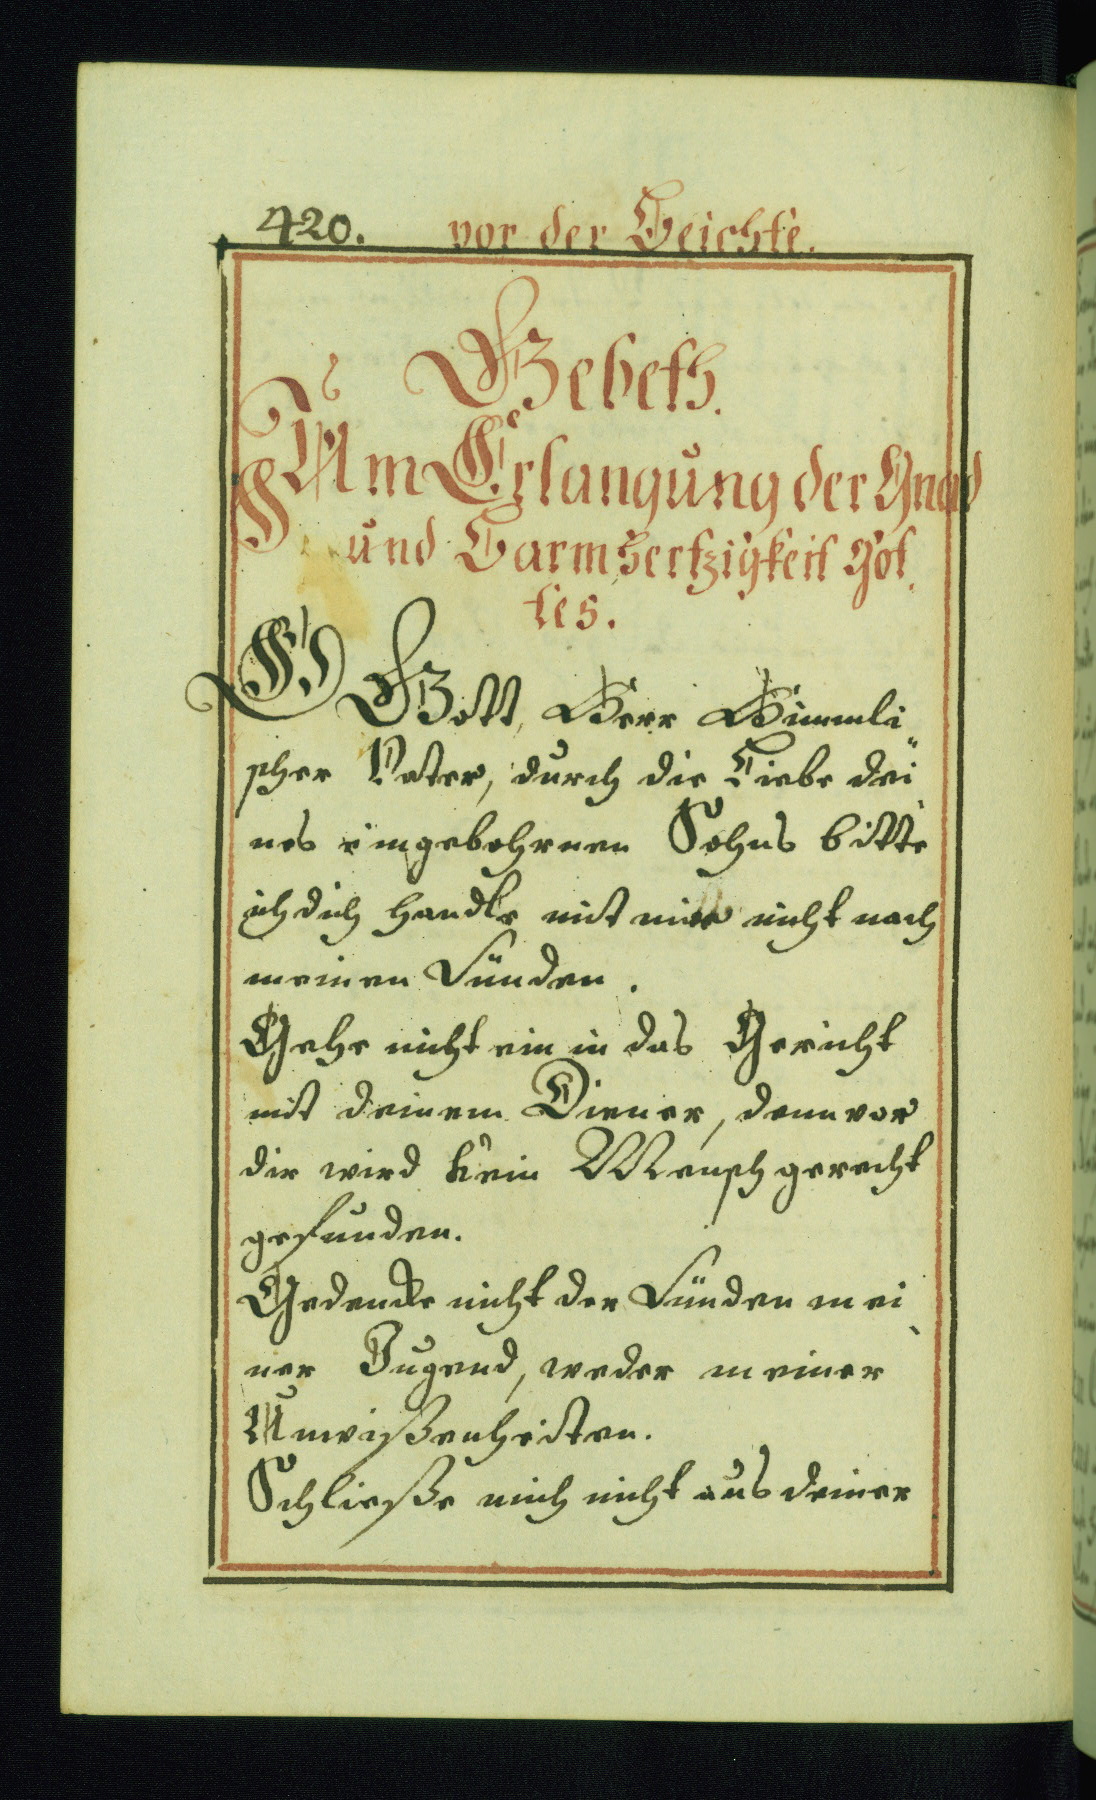 420. vor der Beichte.
Gebeth.
Um Erlangung der Gnad
und Barmhertzigkeit Got
tes.
O Gott, Herr Himmli
scher Vater, durch die Liebe dei
nes eingebohrnen Sohns bitte
ich dich handle mit mir nicht nach
meinen Sünden.
Gehe nicht ein in das Gericht
mit deinem Diener, denn vor
dir wird kein Mensch gerecht
gefunden.
Gedencke nicht der Sünden mei
ner Jugend, weder meiner
Unwißenheiten.
Schließe mich nicht aus deiner